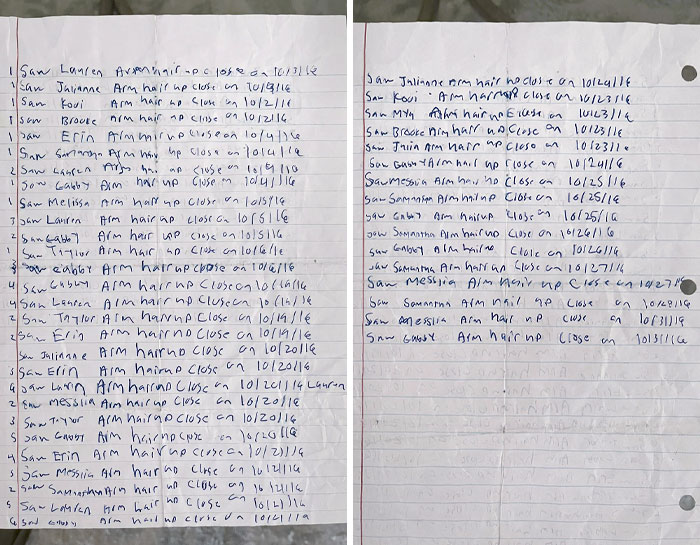 1 Saw Lauren Arm hair up close on 10/3/16
1 Saw Julianne Arm hair up close on 10/4/16
1 Saw Kovi Arm hair up close on 10/2/16
1 Saw Brooke Arm hair up close on 10/2/16
1 Saw Erin Arm hair up close on 10/4/16
1 Saw Samantha Arm hair up close on 10/4/16
2 Saw Lauren Arm hair up close on 10/4/16
1 Saw Gabby Arm hair up close on 10/4/16
1 Saw Melissa Arm hair up close on 10/5/16
3 Saw Lauren Arm hair up close on 10/5/16
2 Saw Gabby Arm hair up close on 10/5/16
1 Saw Taylor Arm hair up close on 10/6/16
3 Saw Gabby Arm hair up close on 10/6/16
4 Saw Gabby Arm hair up Close on 10/19/16
4 Saw Lauren Arm hair up Close on 10/19/16
2 Saw Taylor Arm hair up Close on 10/19/16
2 Saw Erin Arm hair up Close on 10/19/16
Saw Julianne Arm hair up Close on 10/20/16
3 Saw Erin Arm hair up Close on 10/20/16
Saw Arm hair up Close on 10/20/16 Lauren
2 Saw Messiia Arm hair up Close on 10/20/16
3 Saw Taylor Arm hair up Close on 10/20/16
5 Saw Gabby Arm hair up Close on 10/20/16
4 Saw Erin Arm hair up Close on 10/21/16
3 Saw Messiia Arm hair up Close on 10/21/16
2 Saw Samantha Arm hair up Close on 10/21/16
5 Saw Lauren Arm hair up Close on 10/21/16
6 Saw Gabby Arm hair up close on 10/21/16
Saw Julianne Arm hair up close on 10/24/16
Saw Kovi Arm hair up close on 10/23/16
Saw Mya Arm hair up close on 10/23/16
Saw Brooke Arm hair up Close on 10/23/16
Saw Arm hair up Close on 10/23/16
Saw Gabby Arm hair up Close on 10/24/16
Saw Messiia Arm hair up Close on 10/25/16
Saw Samantha Arm hair up Close on 10/25/16
Saw Gabby Arm hair up Close on 10/25/16
Saw Samantha Arm hair up Close on 10/26/16
Saw Gabby Arm hair up Close on 10/26/16
Saw Samantha Arm hair up Close on 10/27/16
Saw Messiia Arm hair up Close on 10/27/16
Saw Samantha Arm hair up Close on 10/28/16
Saw Messiia Arm hair up close on 10/31/16
Saw Gabby Arm hair up Close on 10/31/16